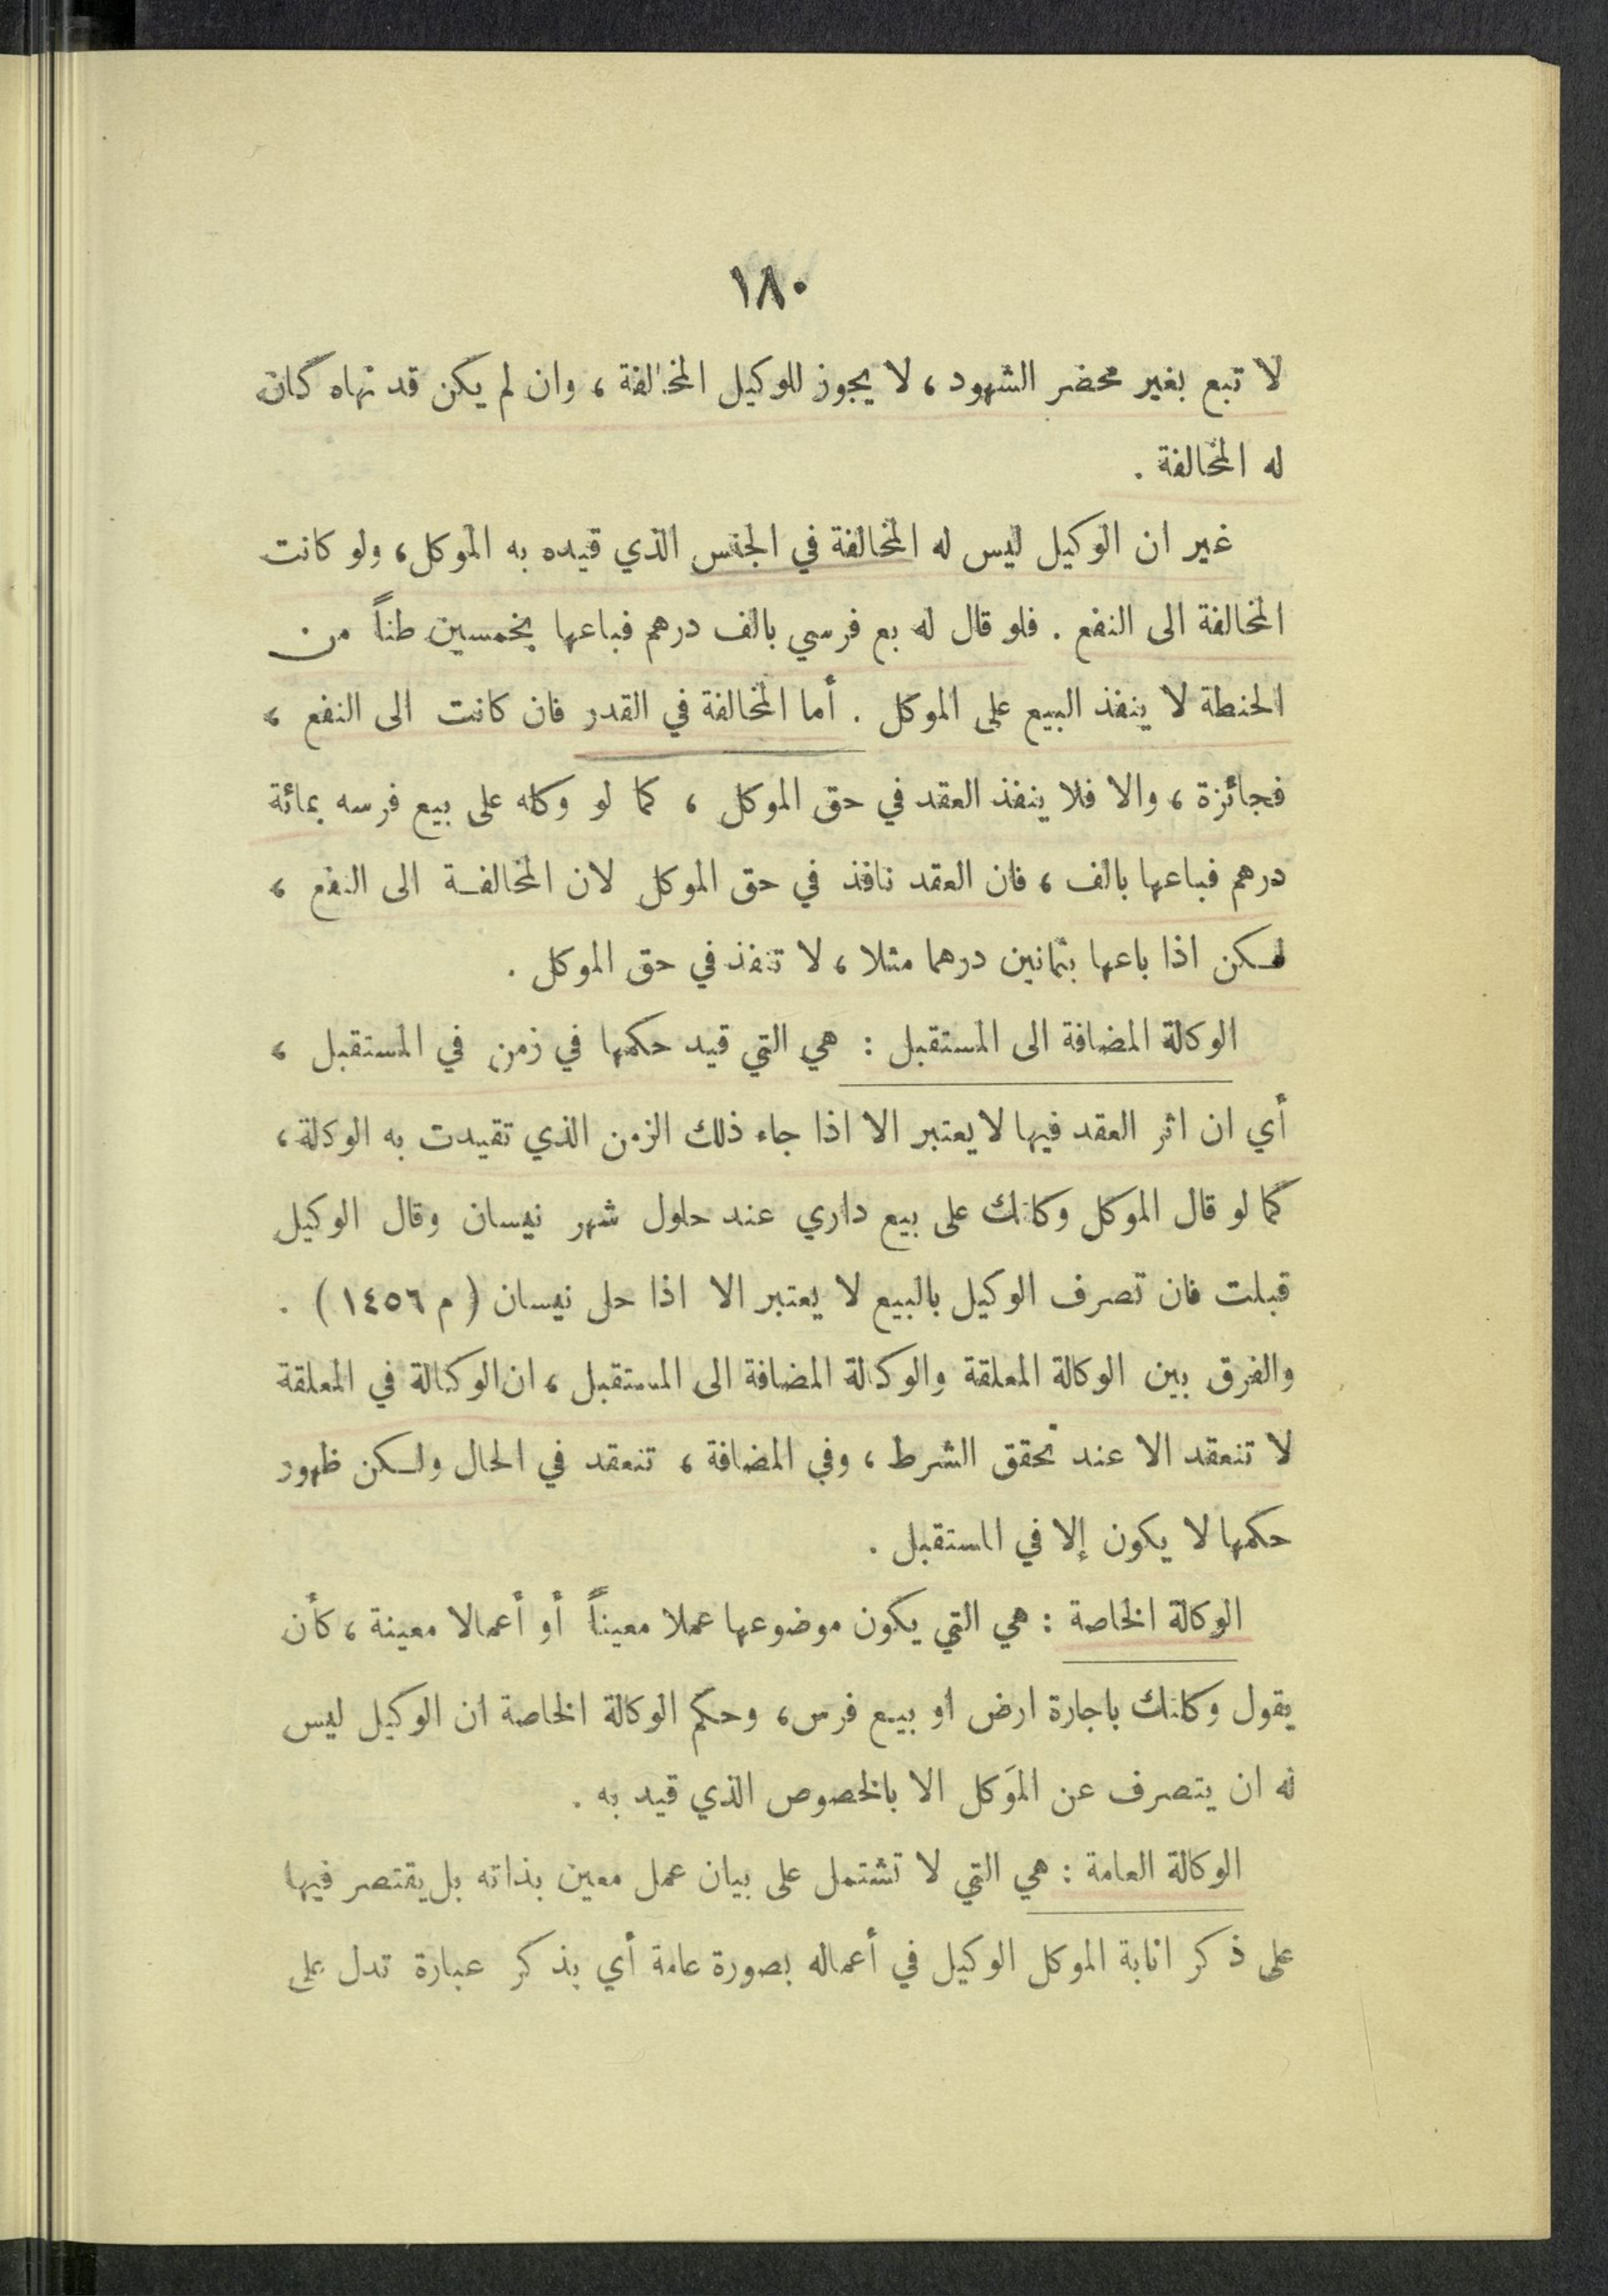 ١٨٠
لا تبع بغير محضر الشهود، لا يجوز للوكيل المخالفة، وان لم يكن قد نهاه كان
له المخالفة.
غير ان الوكيل ليس له المخالفة في الجنس الذي قيده به الموكل، ولو كانت
المخالفة الى النفع. فلو قال له بع فرسي بالف درهم فباعها بخمسين طناً من
الحنطة لا ينفذ البيع على الموكل. أما المخالفة في القدر فان كانت الى النفع،
فجائزة، والا فلا ينفذ العقد في حق الموكل، كما لو وكله على بيع فرسه بمائة
درهم فباعها بالف، فان العقد نافذ في حق الموكل لان المخالفة الى النفع،
لكن اذا باعها بثمانين درهما مثلا، لا تنفذ في حق الموكل.
الوكالة المضافة الى المستقبل: هي التي قيد حكمها في زمن في المستقبل،
أي ان اثر العقد فيها لا يعتبر الا اذا جاء ذلك الزمن الذي تقيدت به الوكالة،
كما لو قال الموكل وكلتك على بيع داري عند حلول شهر نيسان وقال الوكيل
قبلت فان تصرف الوكيل بالبيع لا يعتبر الا اذا حل نيسان (م ١٤٥٦).
والفرق بين الوكالة المعلقة والوكالة المضافة الى المستقبل، ان الوكالة في المعلقة
لا تنعقد الا عند تحقق الشرط، وفي المضافة، تنعقد في الحال ولكن ظهور
حكمها لا يكون إلا في المستقبل.
الوكالة الخاصة: هي التي يكون موضوعها عملا معيناً أو أعمالا معينة، كأن
يقول وكلتك باجارة ارض او بيع فرس، وحكم الوكالة الخاصة ان الوكيل ليس
له ان يتصرف عن المَوكل الا بالخصوص الذي قيد به.
الوكالة العامة: هي التي لا تشتمل على بيان عمل معين بذاته بل يقتصر فيها
على ذكر انابة الموكل الوكيل في أعماله بصورة عامة أي بذكر عبارة تدل على